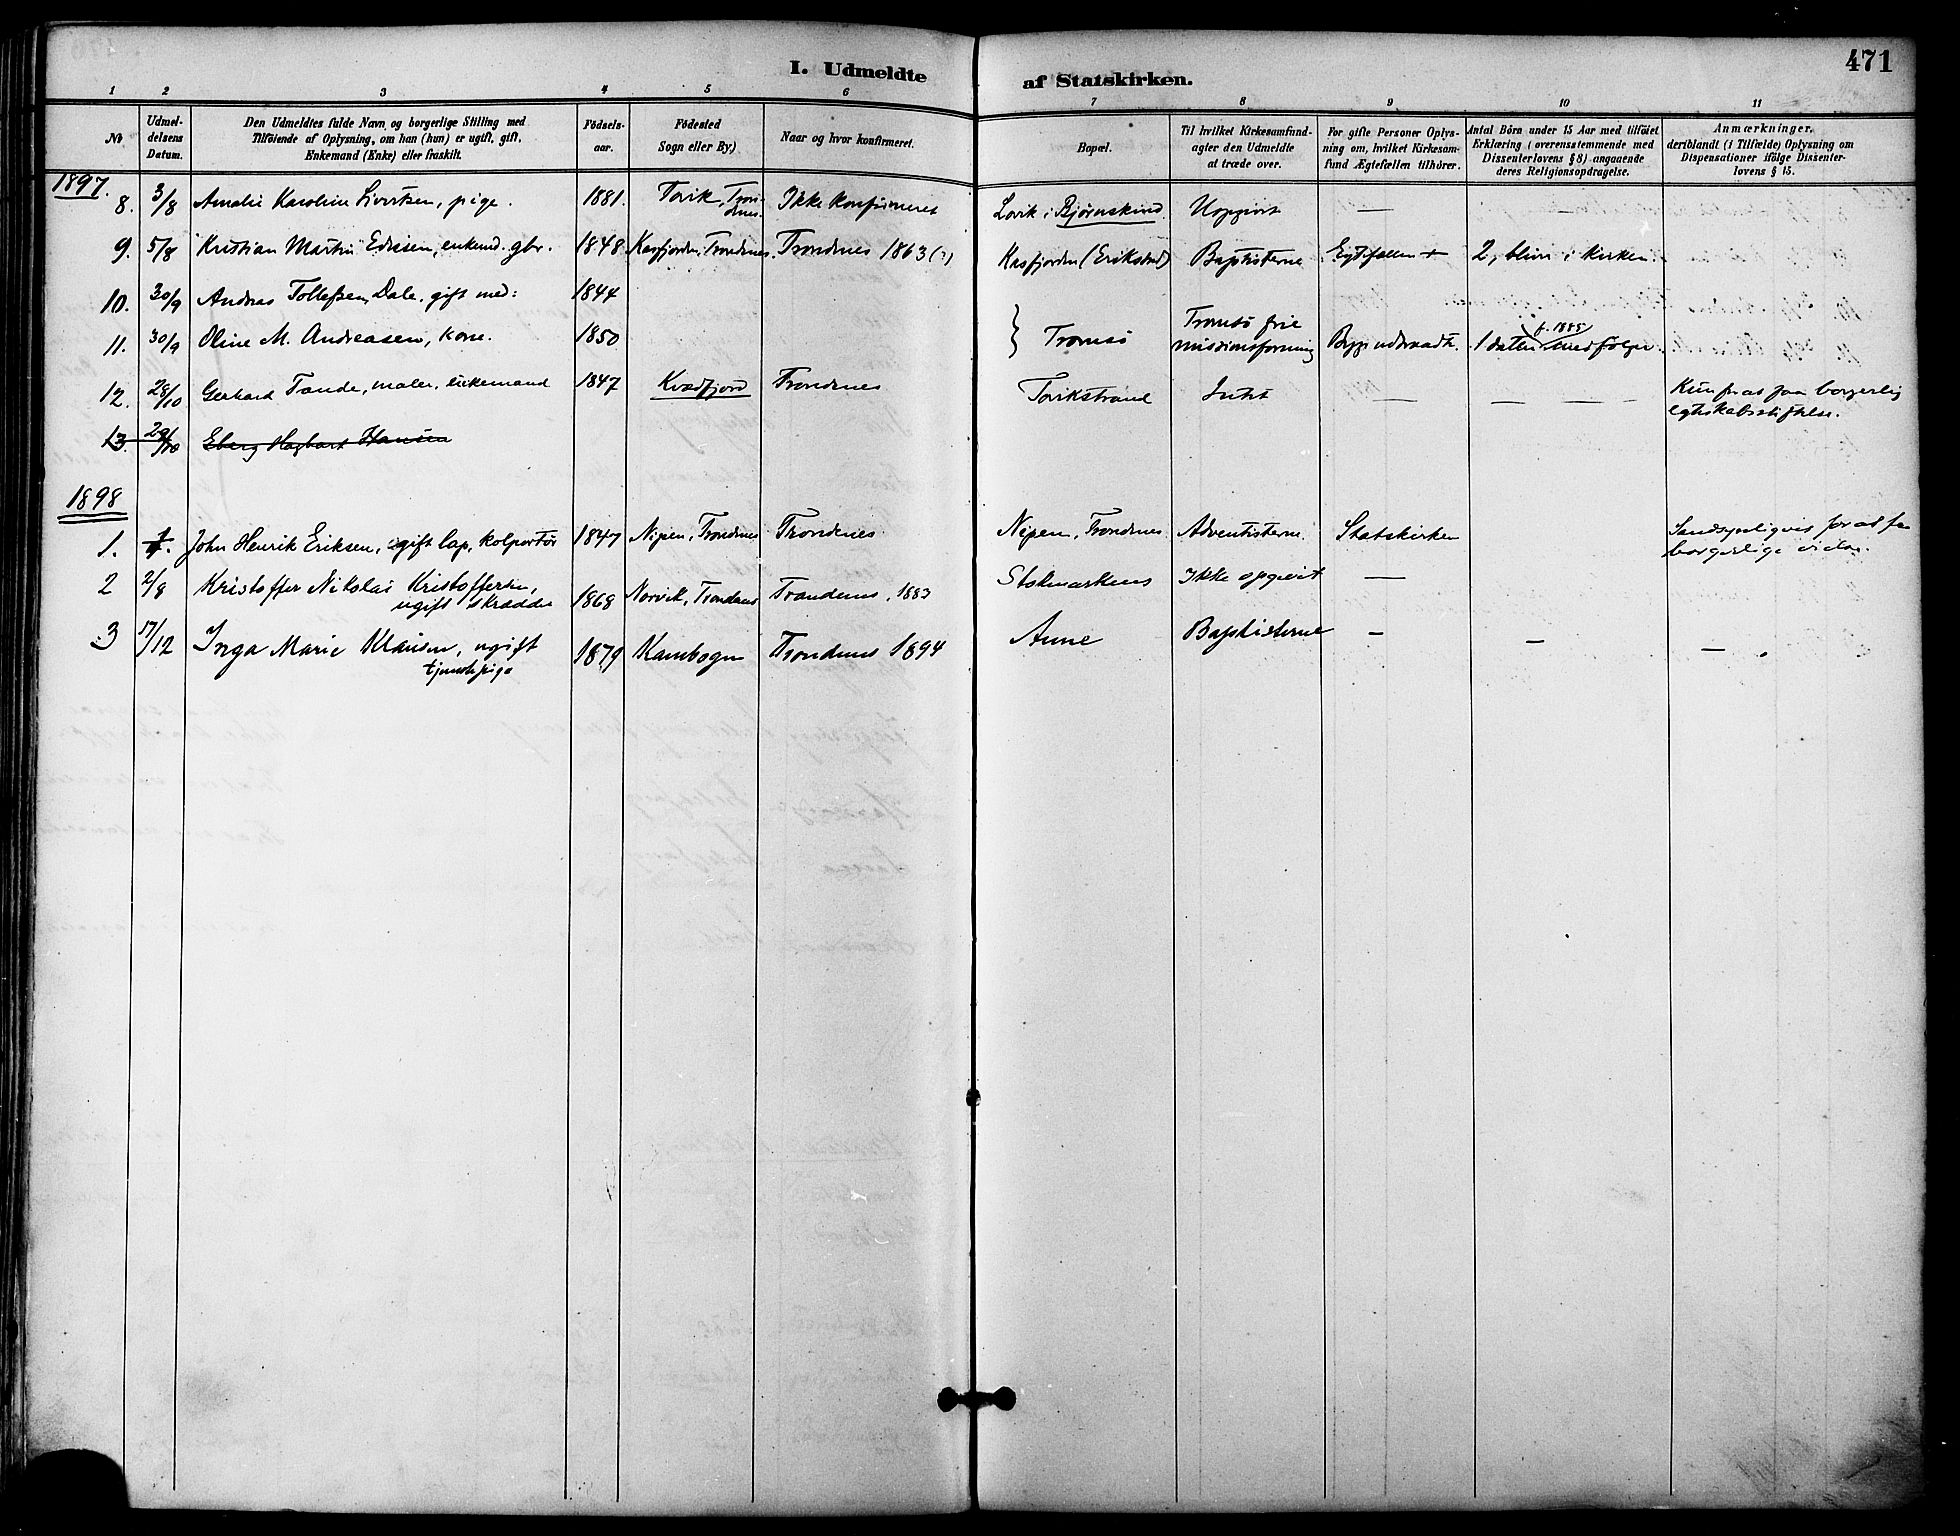 I. Udmeldte af Statskirken.
471
1 2 3 4 5 6 7 8 9 10 11
No
Udmel-
delsens
Datum.
Den Udmeldtes fulde Navn og borgerlige Stilling med
Tilföiende af Oplysning, om han (hun) er ugift, gift,
Enkemand (Enke) eller fraskilt.
Födsels-
aar.
Födested
Sogn eller By.)
Naar og hvor konfirmeret.
Bopæl.
Til hvilket Kirkesamfund
agter den Udmeldte
at træde over.
For gifte Personer Oplys-
ning om, hvilket Kirkesam-
fund Ægtefællen tilhörer.
Antal Börn under 15 Aar med tilföiet
Erklæring (overensstemmende med
Dissenterloves § 8) angaaende
deres Religionsopdragelse.
Anmærkninger,
deriblandt (i Tilfælde) Oplysning om
Dispensationer ifölge Dissenter-
lovens § 15.
1897.
8. 3/8 Amalie Karoline Sivertsen, pige. 1881. Torik, Tron-
denes. Ikke konfirmeret Lovik i Bjørnskind. Uopgivet —
9. 5/8 Kristian Martin Edissen, enkemd. gbr. 1848 Kasfjorden, Trondenes. Trondenes 1863 (?) Kasfjorden (Erikstad) Baptisterne Egtefællen + 2, bliver i kirken.
10. 30/9 Andreas Tollefsen Dale, gift med: 1844
11. 30/9 Oline M. Andreasen, kone. 1850 } Tromsö Tromsö frie
missionsforening Begge udtraadt. 1 datter f. 1885 medfølger
12. 28/10 Gerhard Tande, maler, enkemand 1847 Kvædfjord Trondenes Torikstrand Intet — — — Kun for at faa borgerlig
egteskabsstiftelse.
13. 29/10 Eberg Hagbart Hansen
1898
1. John Henrik Eriksen, gift lap, kolportør 1847 Nipen, Trondenes Trondenes Nipen, Trondenes Adventisterne. Statskirken Sandsynligvis for at faa
borgerlige
2 2/8 Kristoffer Nikolai Kristoffersen,
ugift skrædder 1868 Norvik, Trondenes Trondenes, 1883 Stokmarknes Ikke opgivet —
3 17/12 Inga Marie Klausen, ugift
tjenestepige 1879 Kanebogen Trondenes 1894 Anne Baptisterne — — —